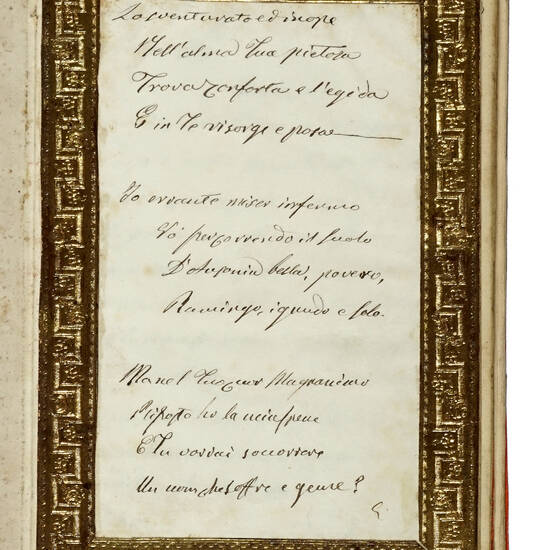 Lo sventurato ed inope
Nell'alma Tua pietosa
Trova conforto e l'egida
E in Te risorge e posa
Io errante miser infermo
Vò percorrendo il suolo
D'Ausonia bella, povero,
Ramingo, ignudo e solo.
Ma nel Tuo cuor Magnanimo
Riposto ho la mia speme
E Tu vorrai soccorrere
Un uom che soffre e geme?